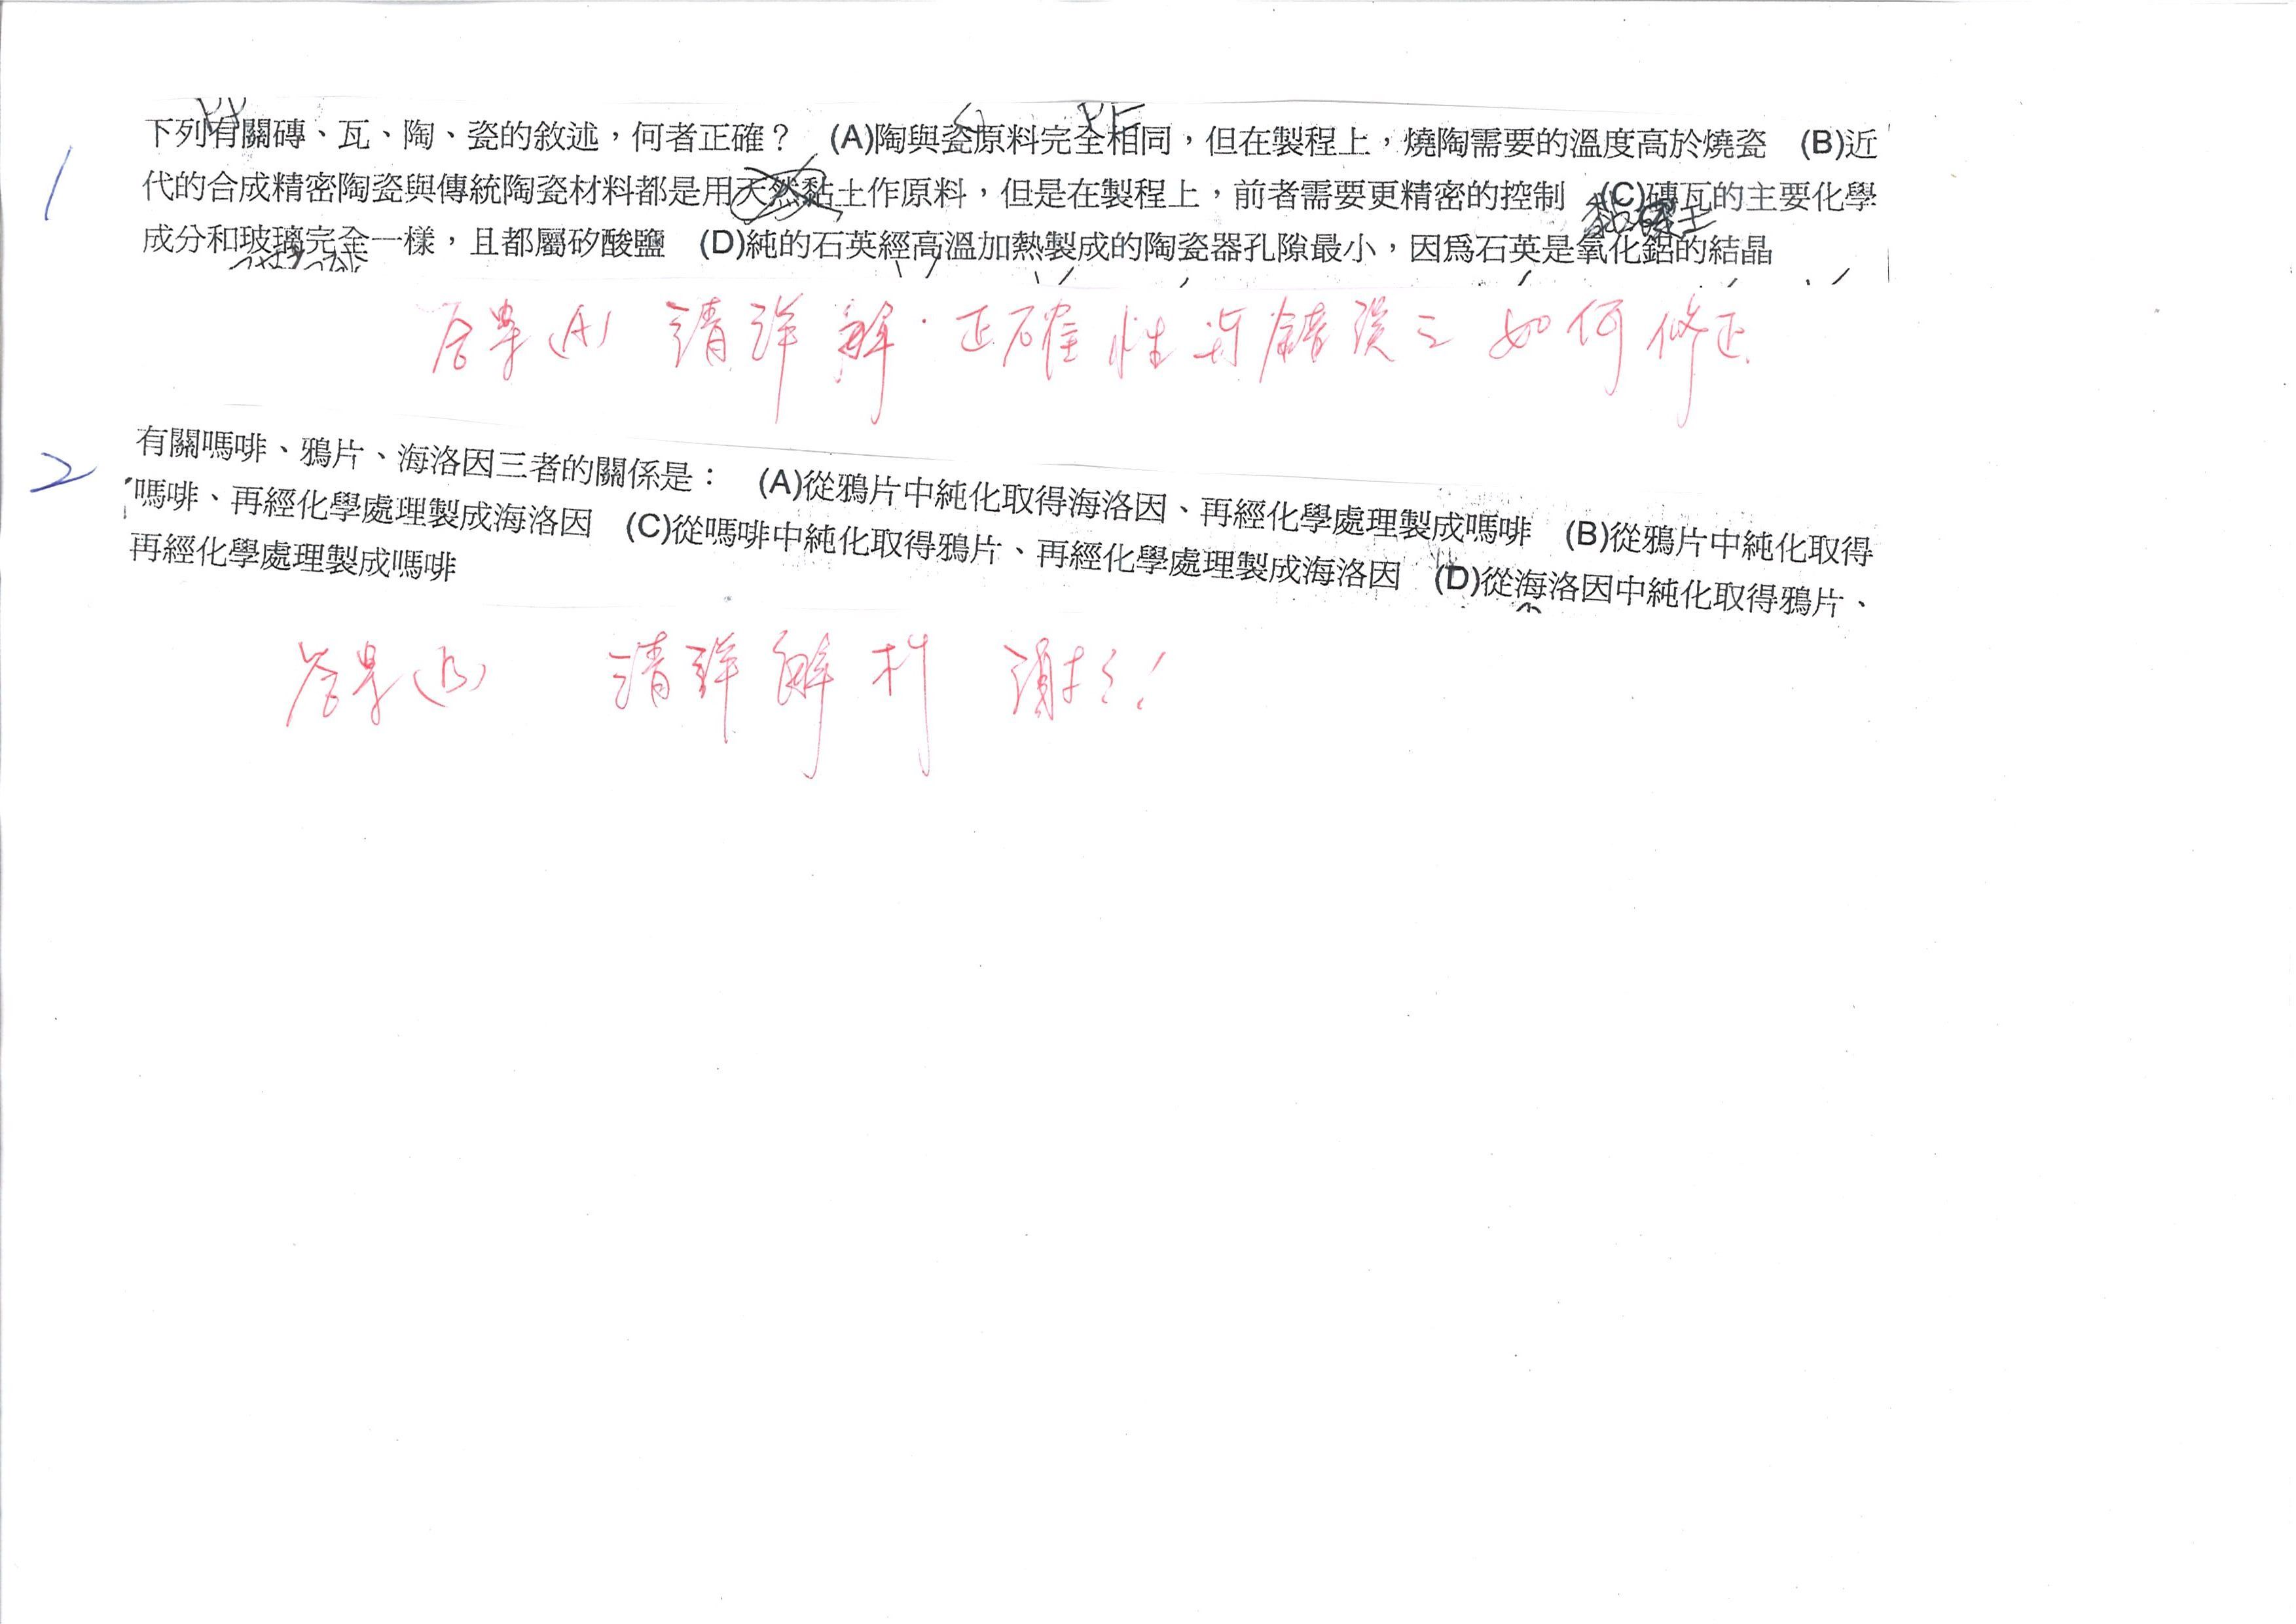 1
下列有關磚、瓦、陶、瓷的敘述，何者正確？ (A)陶與瓷原料完全相同，但在製程上，燒陶需要的溫度高於燒瓷 (B)近
代的合成精密陶瓷與傳統陶瓷材料都是用天然黏土作原料，但是在製程上，前者需要更精密的控制 (C)磚瓦的主要化學
成分和玻璃完全一樣，且都屬矽酸鹽 (D)純的石英經高溫加熱製成的陶瓷器孔隙最小，因爲石英是氧化鋁的結晶
答案(A) 請詳解．正確性 錯誤之如何修正
2
有關嗎啡、鴉片、海洛因三者的關係是： (A)從鴉片中純化取得海洛因、再經化學處理製成嗎啡 (B)從鴉片中純化取得
嗎啡、再經化學處理製成海洛因 (C)從嗎啡中純化取得鴉片、再經化學處理製成海洛因 (D)從海洛因中純化取得鴉片、
再經化學處理製成嗎啡
答案(B) 請詳解析 謝謝！